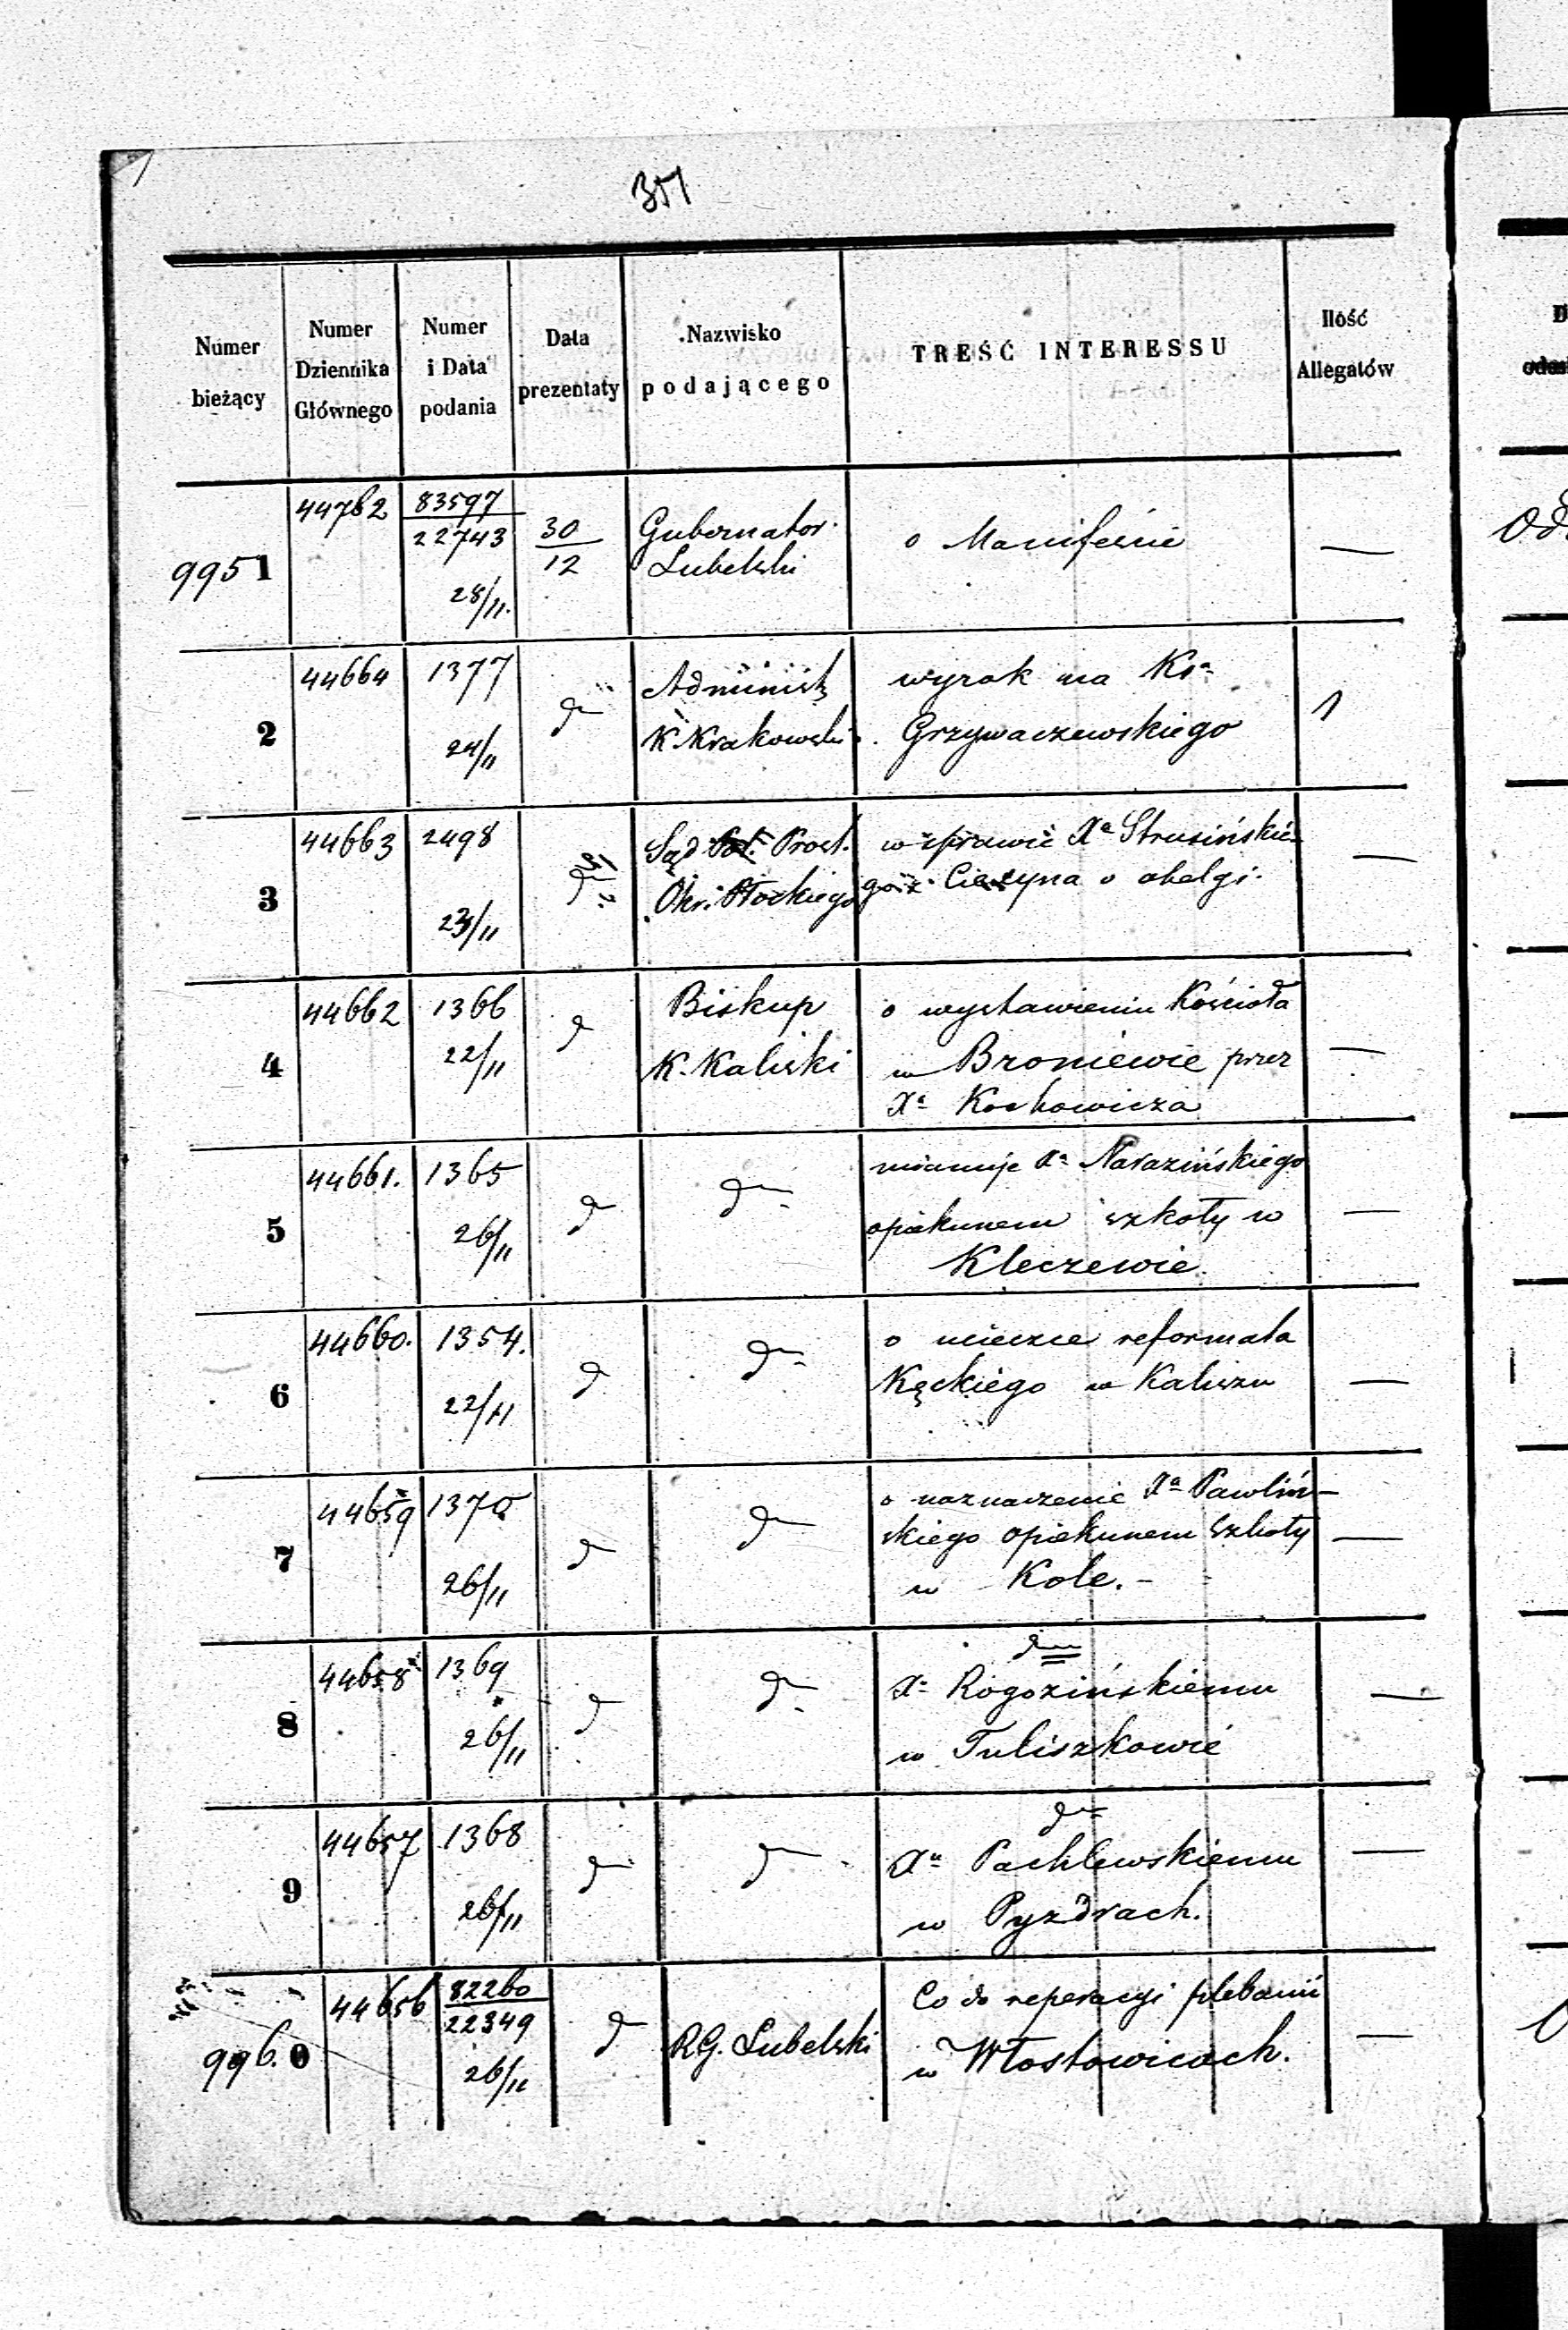 351
Numer bieżący
Numer Dziennika Głównego
Numer i Data podania
Data prezentaty
Nazwisko podającego
TREŚĆ INTERESSU
Ilość Allegatów
9951
44762
83597
22743
28/11.
30
12
Gubernator
Lubelski
o Manifeście
—
2
44664
1377
24/11
do
Administ
K. Krakowski
wyrok na Ksa
Grzywaczewskiego
1
3
44663
2498
23/11
do
Sąd Prost.
Okr. Płockiego
w sprawie Xa Strusińskie-
go z Cieszyna o obelgi.
—
4
44662
1366
22/11
d
Biskup
K. Kaliski
o wystawieniu Kościoła
w Broniewie przez
Xa Kochowicza
—
5
44661.
1365
26/11
d
do
mianuje Xa Narazińskiego
opiekunem szkoły w
Kleczewie.
—
6
44660.
1354.
22/11
d
do
o ucieczce reformata
Kęckiego w Kaliszu
—
7
44659
1370
26/11
d
do
o naznaczenie Xa Pawliń-
skiego opiekunem szkoły
w Kole.-
—
8
44658
1369
26/11
d
do
do
Xa Rogozińskiemu
w Tuliszkowie
—
9
44657
1368
26/11
do
do
do
Xu Pachlewskiemu
w Pyzdrach.
—
996.0
44656
82260
22349
26/11
d
RG. Lubelski
Co do reperacyi plebanii
w Włostowicach.
—